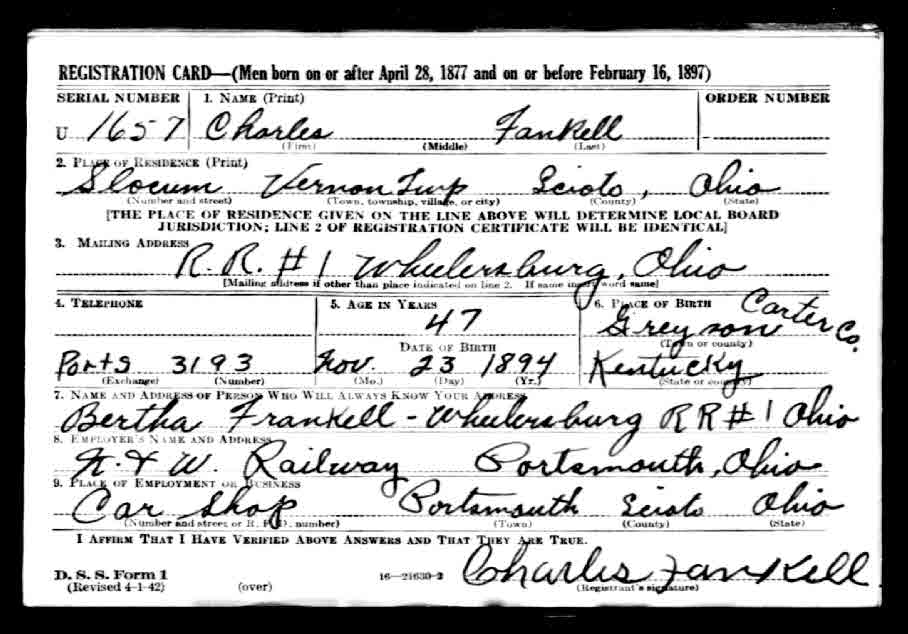 REGISTRATION CARD—(Men born on or after April 28, 1877 and on or before February 16, 1897)
SERIAL NUMBER 1. NAME (Print) ORDER NUMBER
U 1657 Charles Fankell
(First) (Middle) (Last)
2. PLACE OF RESIDENCE (Print)
Slocum Vernon Twp Scioto, Ohio
(Number and street) (Town, township, village, or city) (County) (State)
[THE PLACE OF RESIDENCE GIVEN ON THE LINE ABOVE WILL DETERMINE LOCAL BOARD
JURISDICTION; LINE 2 OF REGISTRATION CERTIFICATE WILL BE IDENTICAL]
3. MAILING ADDRESS
R.R. #1 Wheelersburg, Ohio
[Mailing address if other than place indicated on line 2. If same insert word same]
4. TELEPHONE 5. AGE IN YEARS 6. PLACE OF BIRTH
47 Greyson Carter Co.
DATE OF BIRTH (Town or county)
Ports 3193 Nov. 23 1894 Kentucky
(Exchange) (Number) (Mo.) (Day) (Yr.) (State or country)
7. NAME AND ADDRESS OF PERSON WHO WILL ALWAYS KNOW YOUR ADDRESS
Bertha Frankell - Wheelersburg RR #1 Ohio
8. EMPLOYER'S NAME AND ADDRESS
N. & W. Railway Portsmouth, Ohio
9. PLACE OF EMPLOYMENT OR BUSINESS
Car Shop Portsmouth Scioto Ohio
(Number and street or R. F. D. number) (Town) (County) (State)
I AFFIRM THAT I HAVE VERIFIED ABOVE ANSWERS AND THAT THEY ARE TRUE.
D. S. S. Form 1 Charles Fankell
(Revised 4-1-42) (over) 16—21630-2 (Registrant's signature)